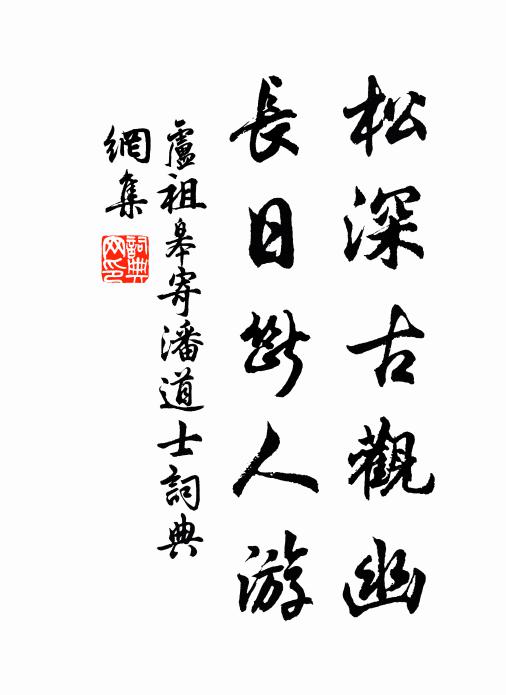 松深古觀幽
長日斷人游
盧祖皋寄潘道士詞典
網集
詞典
网印